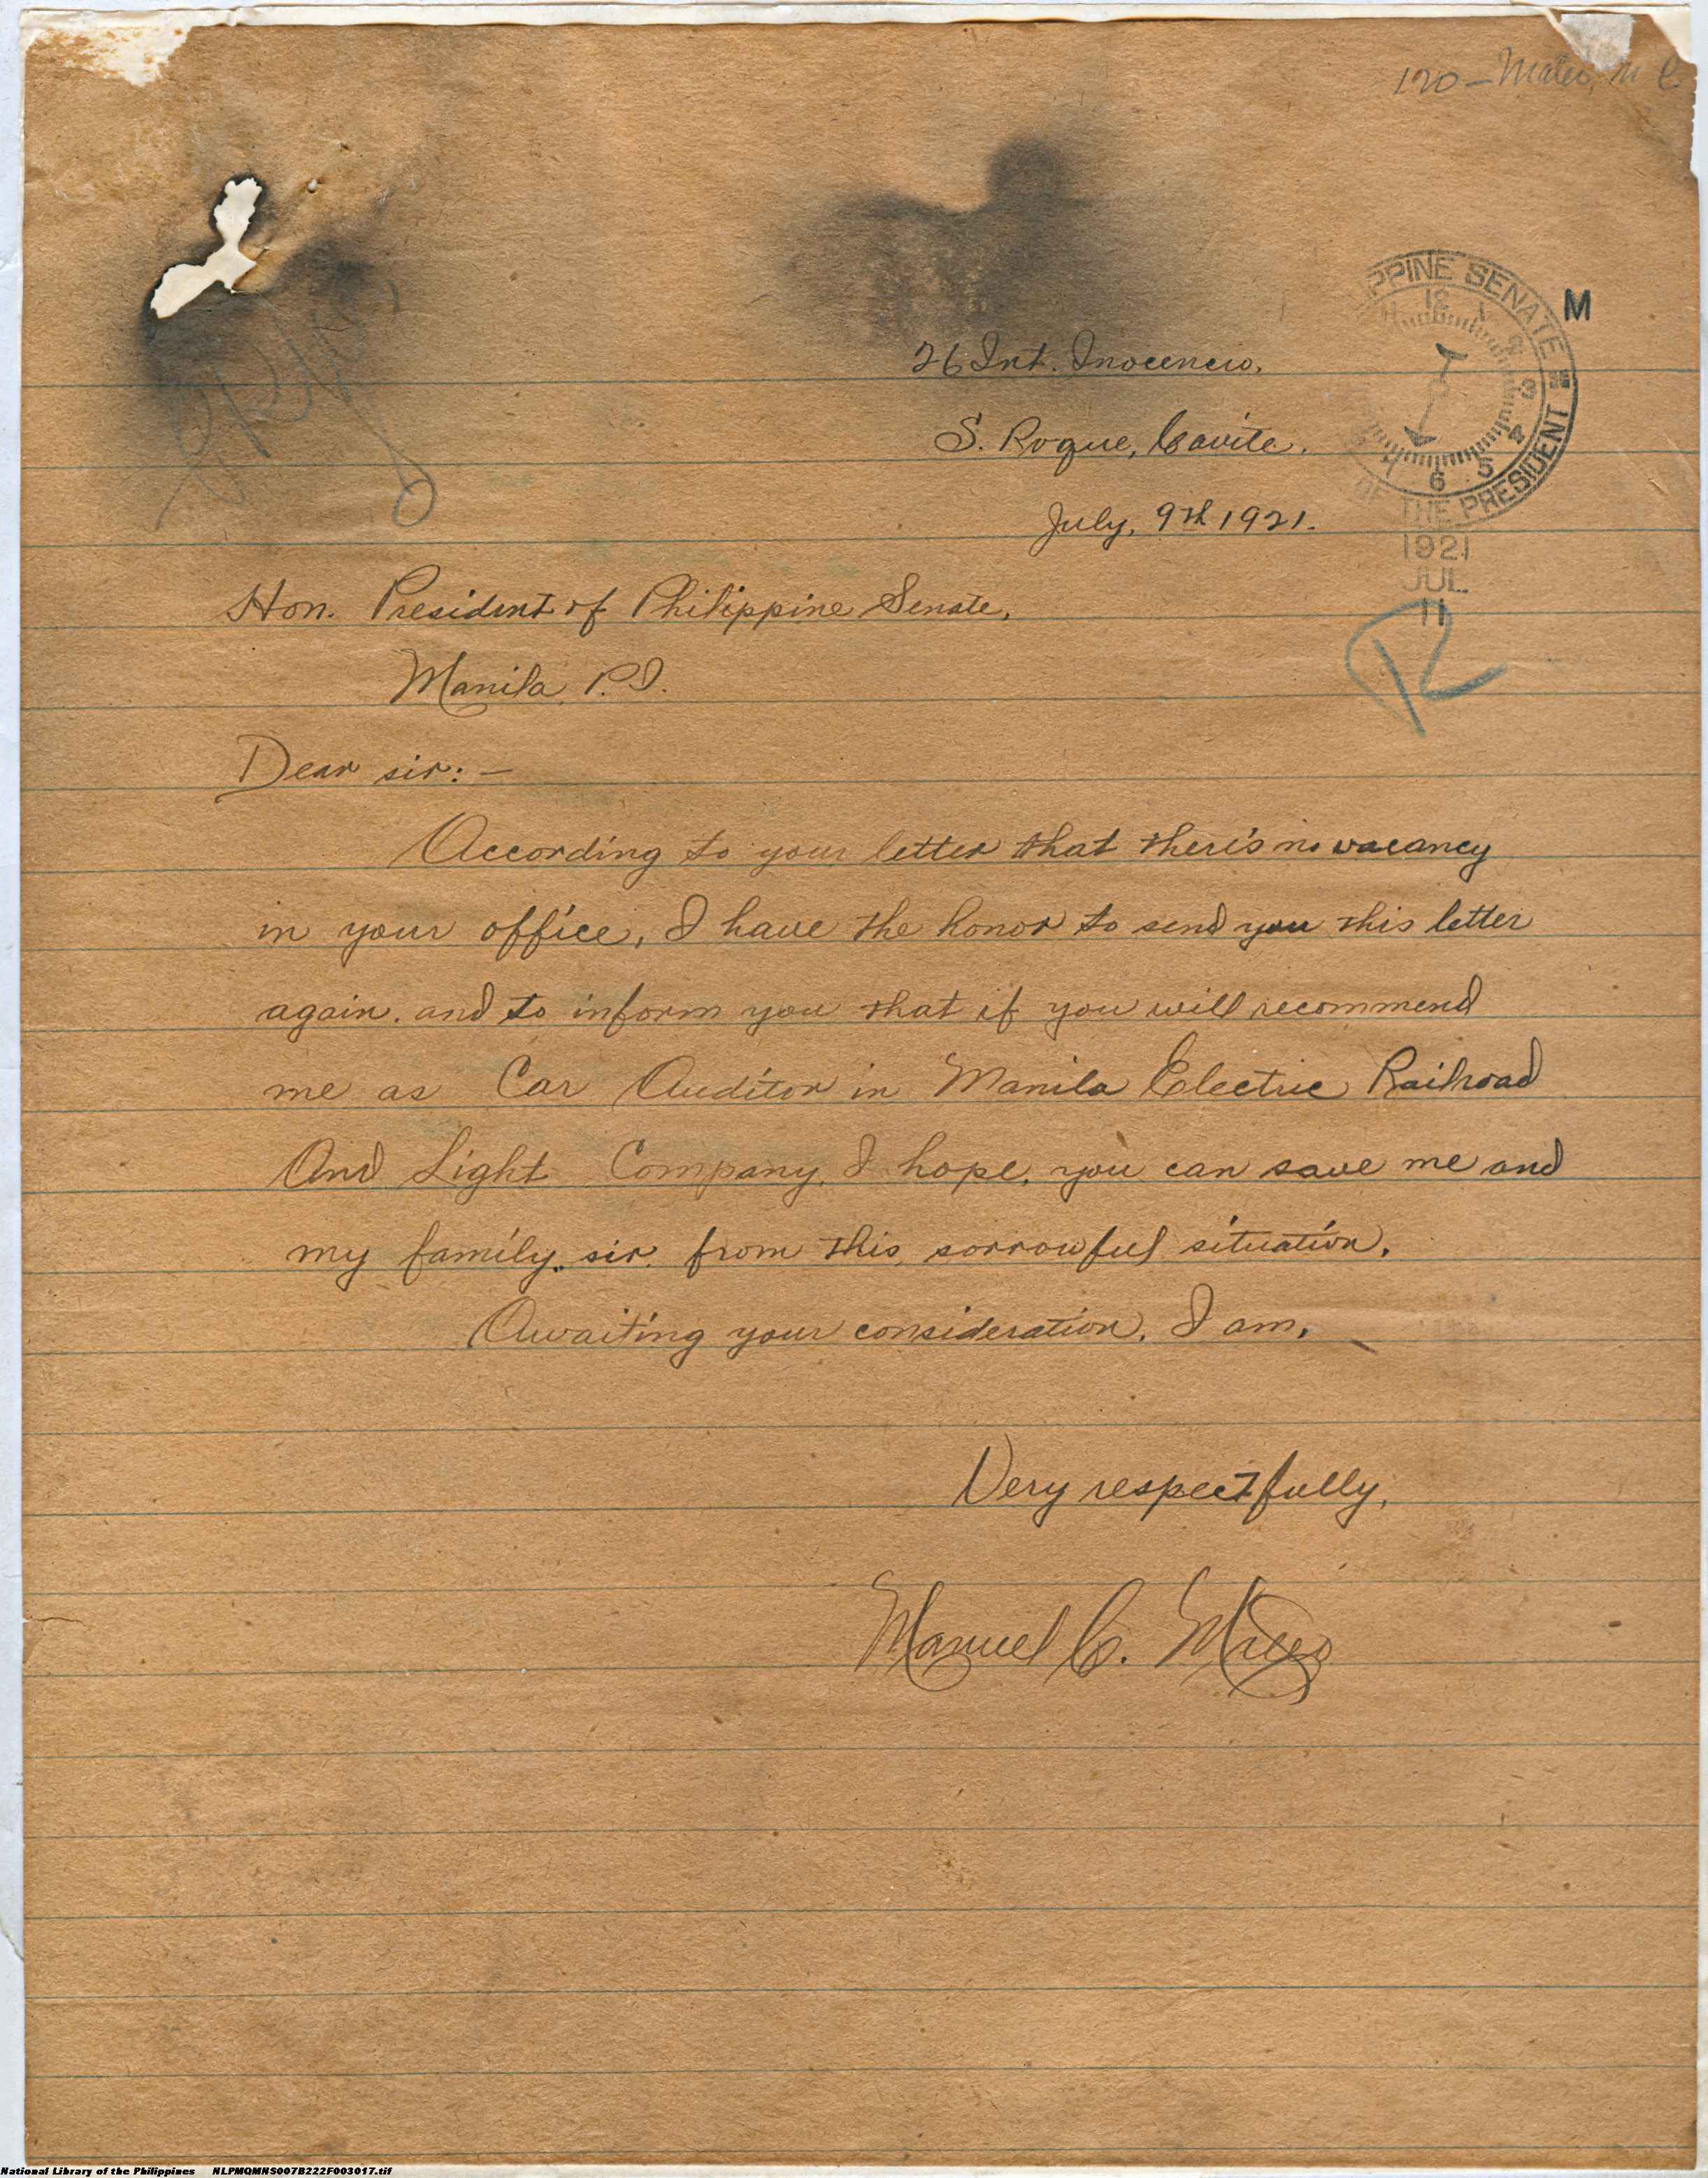 120 - Mateo, M C.
PPINE SENATE
M
1 3 4 5 6
OF THE PRESIDENT
1921
JUL
11
R
26 Int. Inocencio.
S. Roque, Cavite.
July, 9th 1921.
Hon. President of Philippine Senate,
Manila, P.I.
Dear sir: -
According to your letter that there's no vacancy
in your office, I have the honor to send you this letter
again. and to inform you that if you will recommend
me as Car Auditor in Manila Electric Railroad
And Light Company, I hope, you can save me and
my family, sir. from this, sorrowful situation.
Awaiting your consideration, I am,
Very respectfully,
Manuel C. Mateo
National Library of the Philippines NLPMQMNS007B222F003017.tif